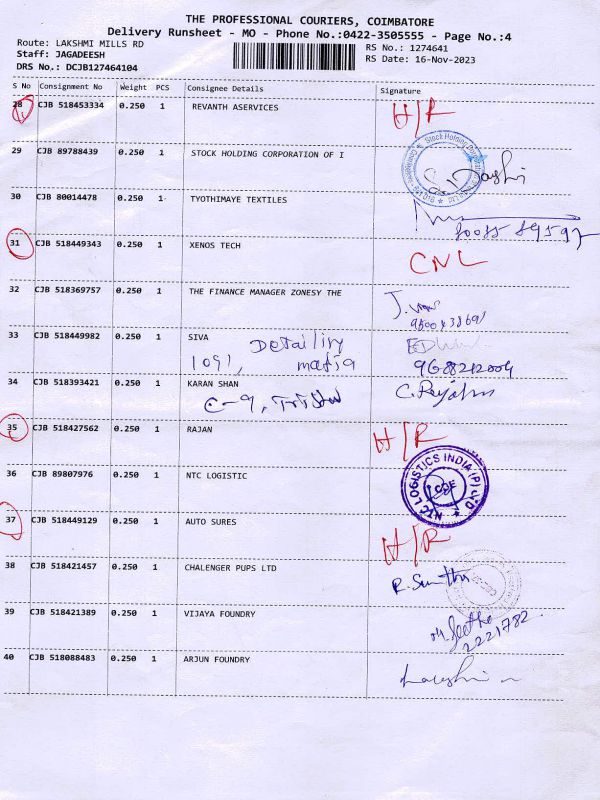 THE PROFESSIONAL COURIERS, COIMBATORE
Delivery Runsheet - MO - Phone No.:0422-3505555 - Page No.:4
Route: LAKSHMI MILLS RD
Staff: JAGADEESH
DRS No.: DCJB127464104
RS No.: 1274641
RS Date: 16-Nov-2023
S No Consignment No Weight PCS Consignee Details Signature
28 CJB 518453334 0.250 1 REVANTH ASERVICES H/R
29 CJB 89788439 0.250 1 STOCK HOLDING CORPORATION OF I
30 CJB 80014478 0.250 1 TYOTHIMAYE TEXTILES
31 CJB 518449343 0.250 1 XENOS TECH CNL
32 CJB 518369757 0.250 1 THE FINANCE MANAGER ZONESY THE
33 CJB 518449982 0.250 1 SIVA
1091,
9688212004
34 CJB 518393421 0.250 1 KARAN SHAN
C-9,
35 CJB 518427562 0.250 1 RAJAN H/R
36 CJB 89807976 0.250 1 NTC LOGISTIC
NTC LOGISTICS INDIA (P) LTD
37 CJB 518449129 0.250 1 AUTO SURES H/R
38 CJB 518421457 0.250 1 CHALENGER PUPS LTD
39 CJB 518421389 0.250 1 VIJAYA FOUNDRY
2221782
40 CJB 518088483 0.250 1 ARJUN FOUNDRY